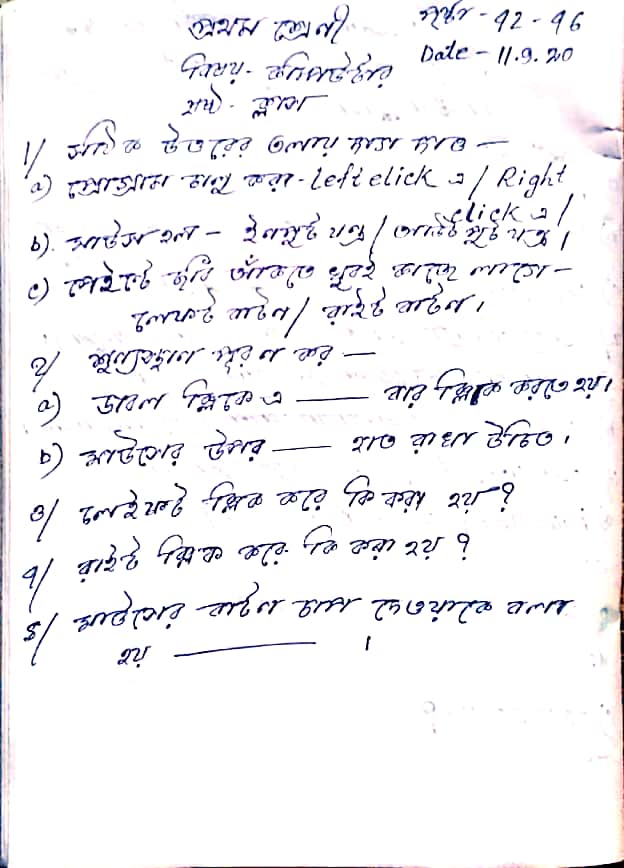 প্রথম শ্রেণী
পৃষ্ঠা - 42 - 46
Date - 11.9.20
বিষয় - কম্পিউটার
ক্লাস
1/ সঠিক উত্তরের তলায় দাগ দাও —
a) প্রোগ্রাম চালু করা - Left click এ / Right
click এ /
b) মাউস হল - ইনপুট যন্ত্র / আউট পুট যন্ত্র ।
c) পেইন্টে ছবি আঁকতে খুবই কাজে লাগে -
লেফট বাটন / রাইট বাটন ।
2/ শূন্যস্থান পূরণ কর —
a) ডাবল ক্লিকে এ —— বার ক্লিক করতে হয়।
b) মাউসের উপর —— হাত রাখা উচিত ।
৩/ লেইফট ক্লিক করে কি করা হয় ?
4/ রাইট ক্লিক করে কি করা হয় ?
৫/ মাউসের বাটন চাপ দেওয়াকে বলা
হয় ——— ।